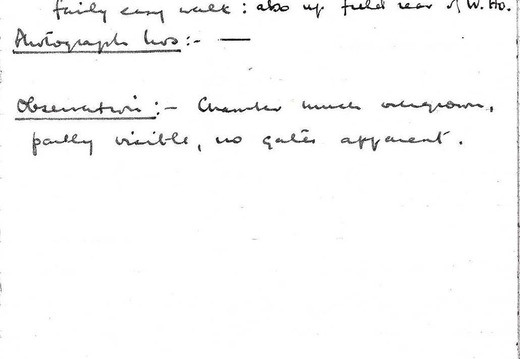 fairly easy walk : also up field rear of W. Ho.
Photograph Nos :- —
Observation :- Chamber much overgrown,
partly visible, no gates apparent.